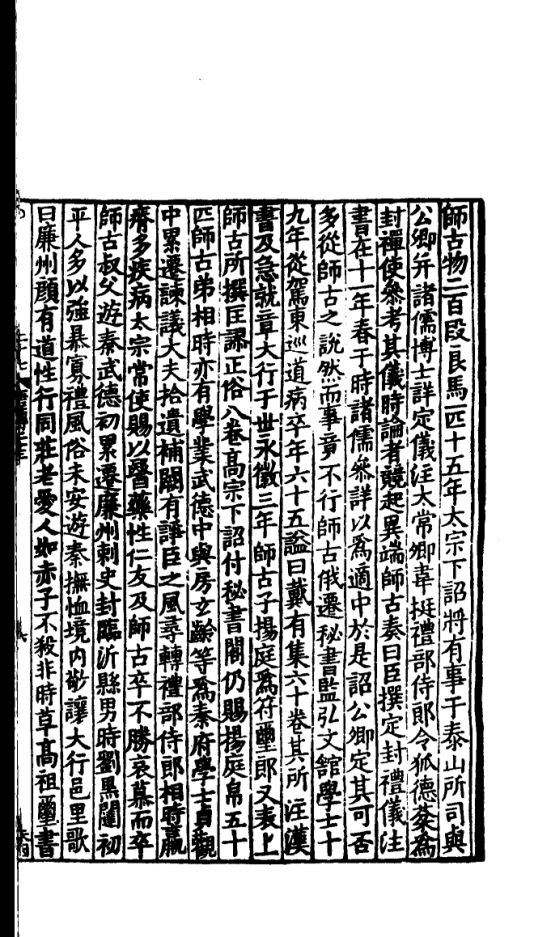 師古物二百段良馬一匹十五年太宗下詔將有事于泰山所司與
公卿并諸儒博士詳定儀注太常卿韋挺禮部侍郎令狐德棻為
封禪使參考其儀時論者競起異端師古奏曰臣撰定封禪儀注
書在十一年春于時諸儒叅詳以爲適中於是詔公卿定其可否
多從師古之說然而事竟不行師古俄遷秘書監弘文舘學士十
九年從駕東巡道病卒年六十五謚曰戴有集六十卷其所注漢
書及急就章大行于世永徽三年師古子揚庭爲符璽郎又表上
師古所撰匡謬正俗八卷高宗下詔付秘書閣仍賜揚庭帛五十
匹師古弟相時亦有學業武德中與房玄齡等爲秦府學士貞觀
中累遷諫議大夫拾遺補闕有諍臣之風尋轉禮部侍郎相時羸
瘠多疾病太宗常使賜以醫藥性仁友及師古卒不勝哀慕而卒
師古叔父遊秦武德初累遷廉州刺史封臨沂縣男時劉黑闥初
平人多以強暴寡禮風俗未安遊秦撫恤境內敬讓大行邑里歌
曰廉州顏有道性行同莊老愛人如赤子不殺非時草高祖璽書